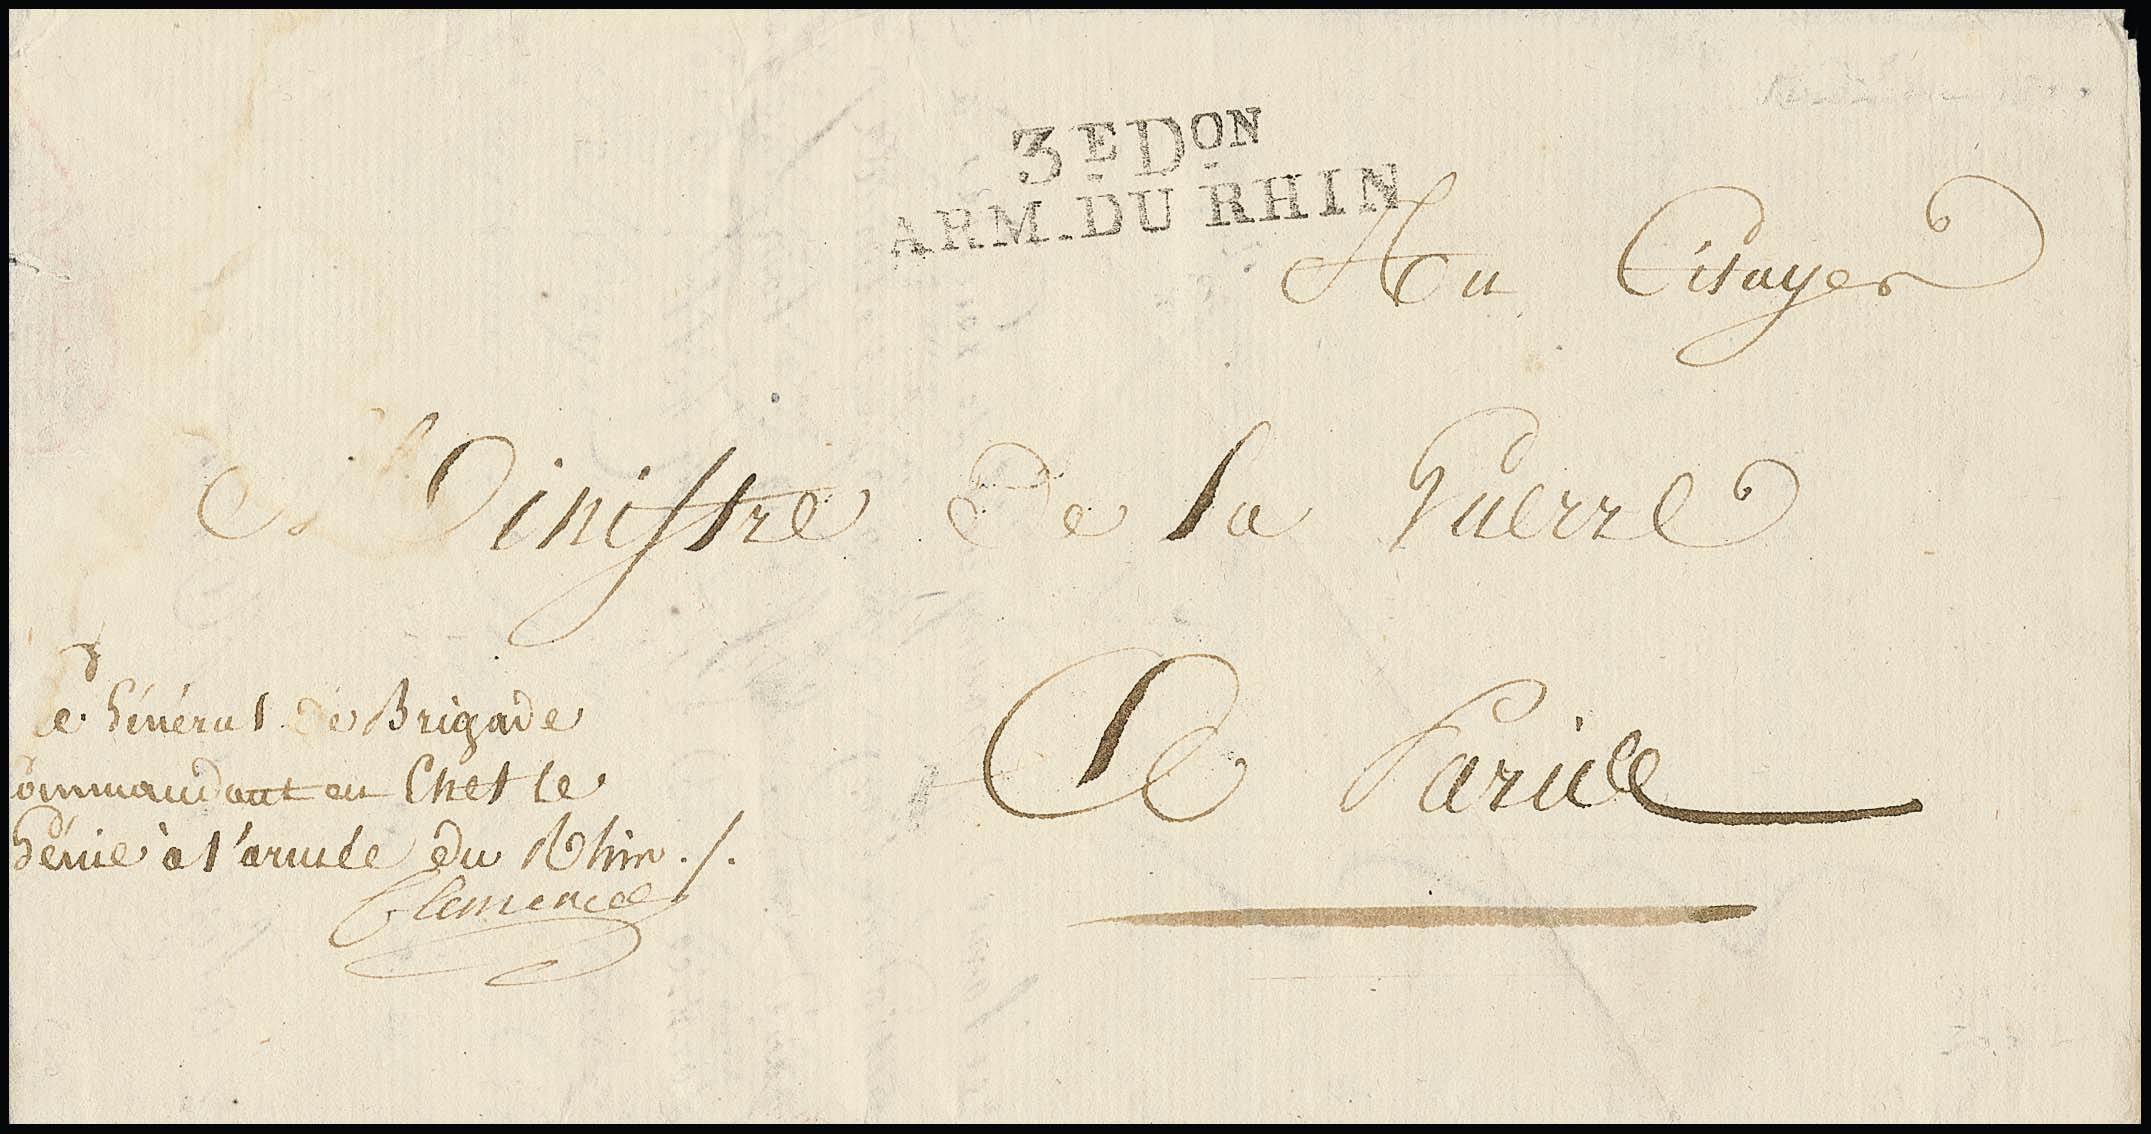 3E DON
ARM. DU RHIN
Au Citoyen
Ministre de la Guerre
A Paris
Le Général de Brigade
Commandant en Chef le
Génie à l'armée du Rhin ./.
Clemencet